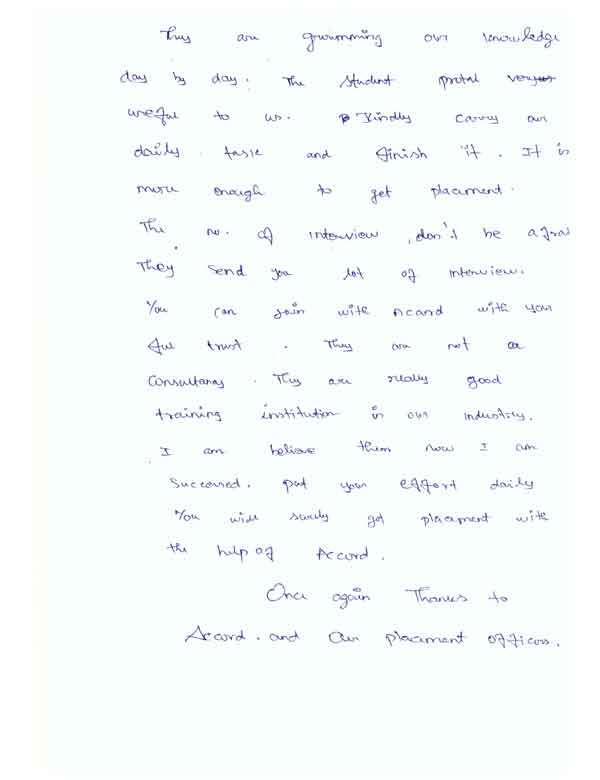 They are grooming our knowledge
day by day. The student protal very
useful to us. Kindly carry our
daily task and finish it. It is
more enough to get placement.
The no. of interview, don't be afrai
They send you lot of interview.
You can join with Accord with your
ful trust. They are not a
Consultancy. They are really good
training institution in our industry.
I am believe them now I am
Succeered. put your effort daily
You will surely get placement with
the help of Accord.
Once again Thanks to
Accord. and Our placement officers.